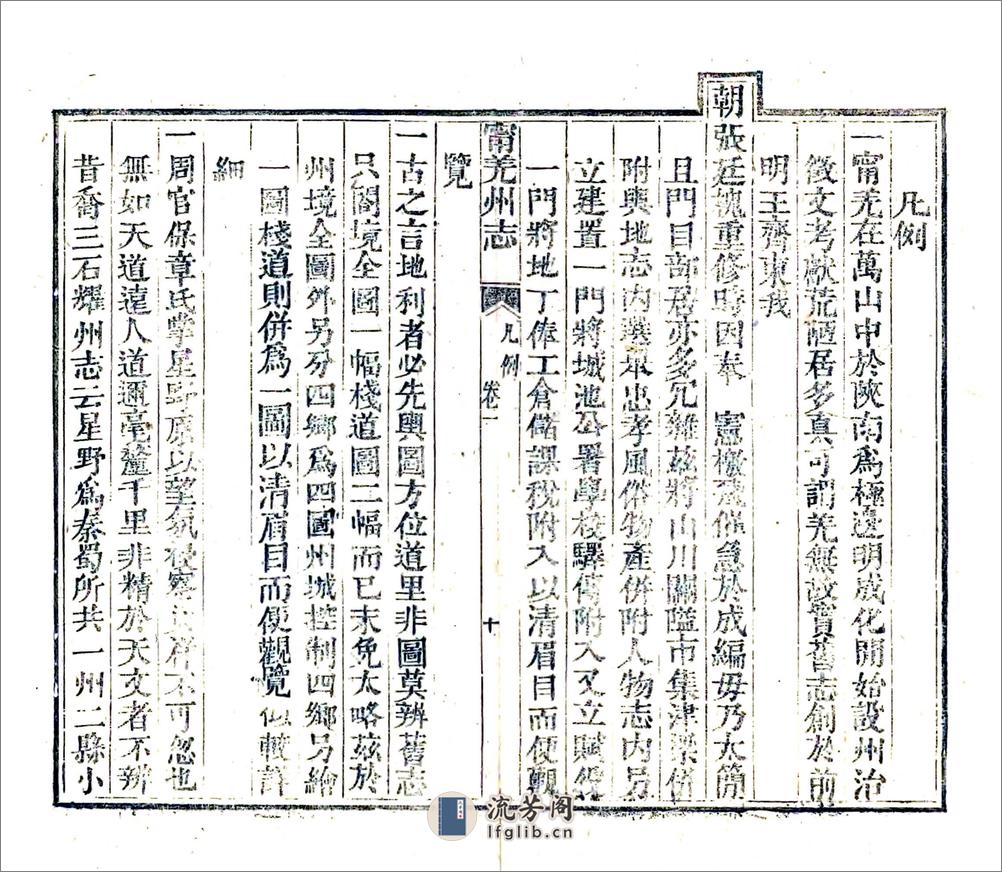 凡例
一甯羌在萬山中於陝南爲極邊明成化開始設州治
徵文考獻荒陋居多真可謂羌無故實舊志創於前
明王齊東我
朝張廷槐重修時因奉 憲檄催急於成編毋乃太簡
且門目部居亦多冗雜茲將山川關隘市集津梁併
附輿地志內選舉忠孝風俗物產併附人物志內另
立建置一門將城池公署學校驛傳附入又立賦役
一門將地丁俸工倉儲課稅附入以清眉目而便觀
覽
甯羌州志 凡例 卷一 十
一古之言地利者必先輿圖方位道里非圖莫辨舊志
只闔境全圖一幅棧道圖二幅而已未免太略茲於
州境全圖外另分四鄉爲四圖州城控制四鄉另繪
一圖棧道則併爲一圖以清眉目而便觀覽似較詳
細
一周官保章氏掌星野原以望氛祲察不可忽也
無如天道遠人道邇毫釐千里非精於天文者不辨
昔喬三石耀州志云星野爲秦蜀所共一州二縣小
流芳阁
lfglib.cn